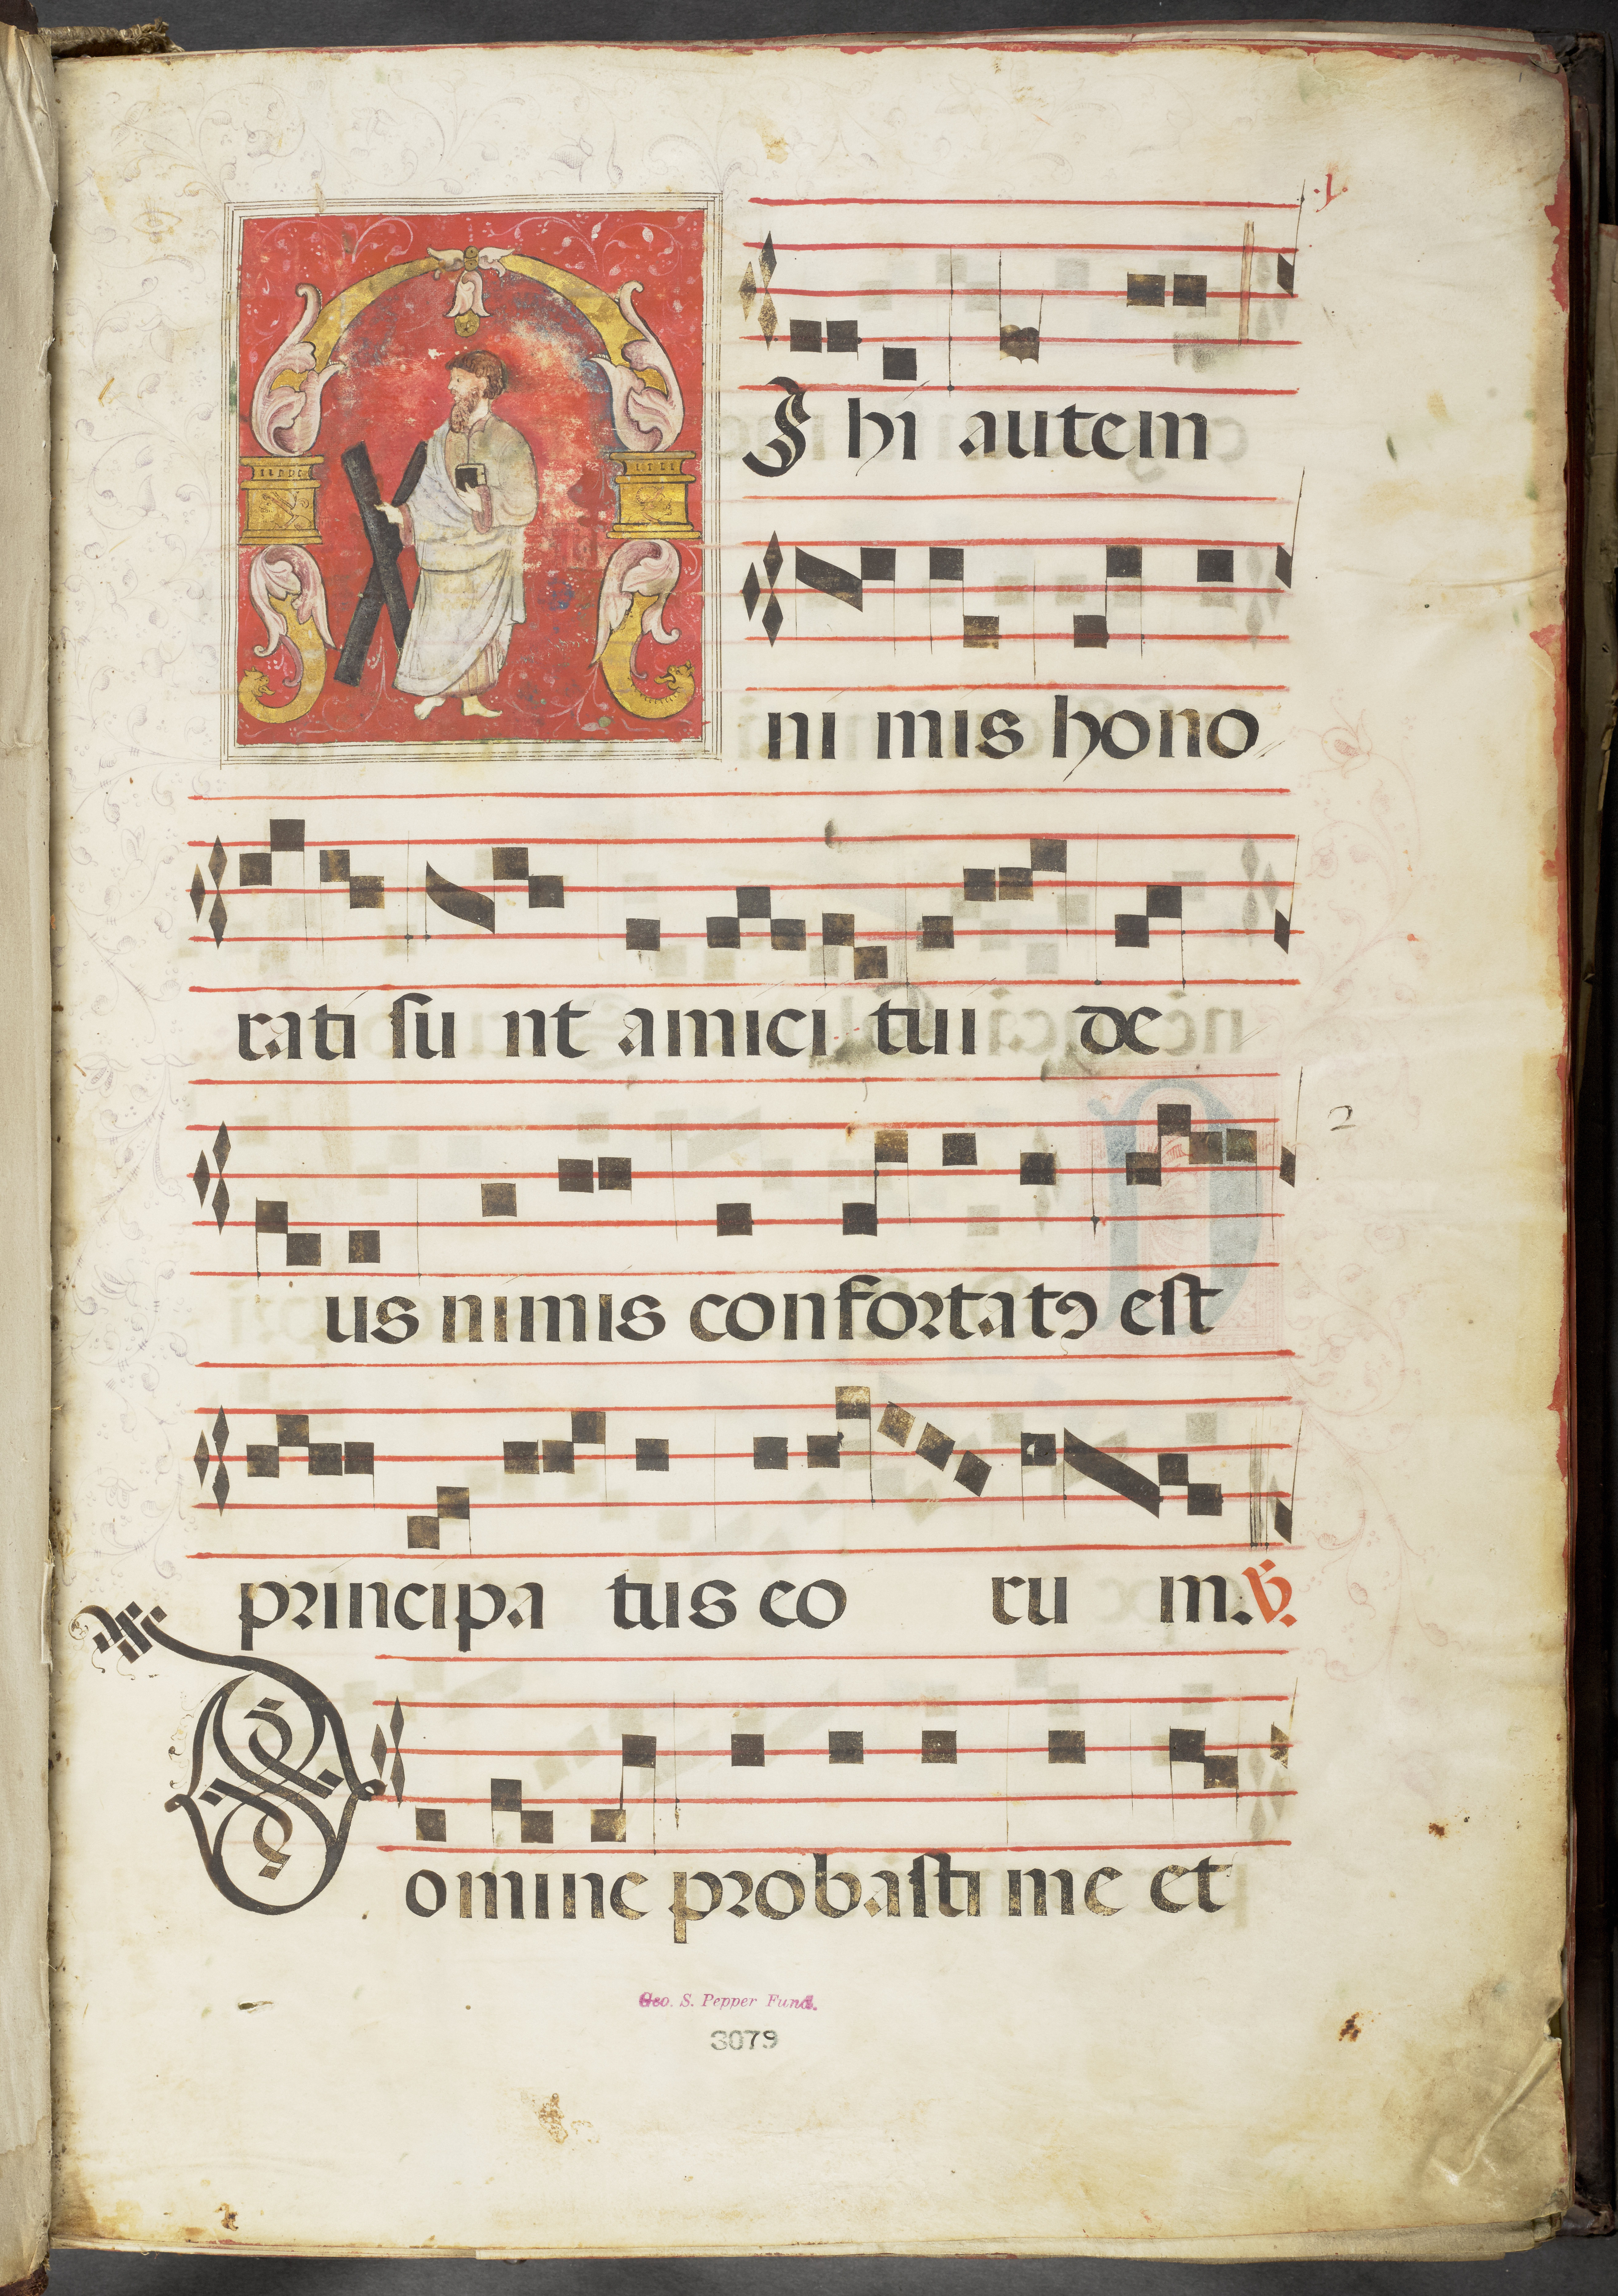 .1.
MIhi autem
ni mis hono
rati ſu nt amici tui de
us nimis confortatꝯ eſt
2
principa tus eo ru m. ℣.
Domine probaſti me et
Geo. S. Pepper Fund.
3079